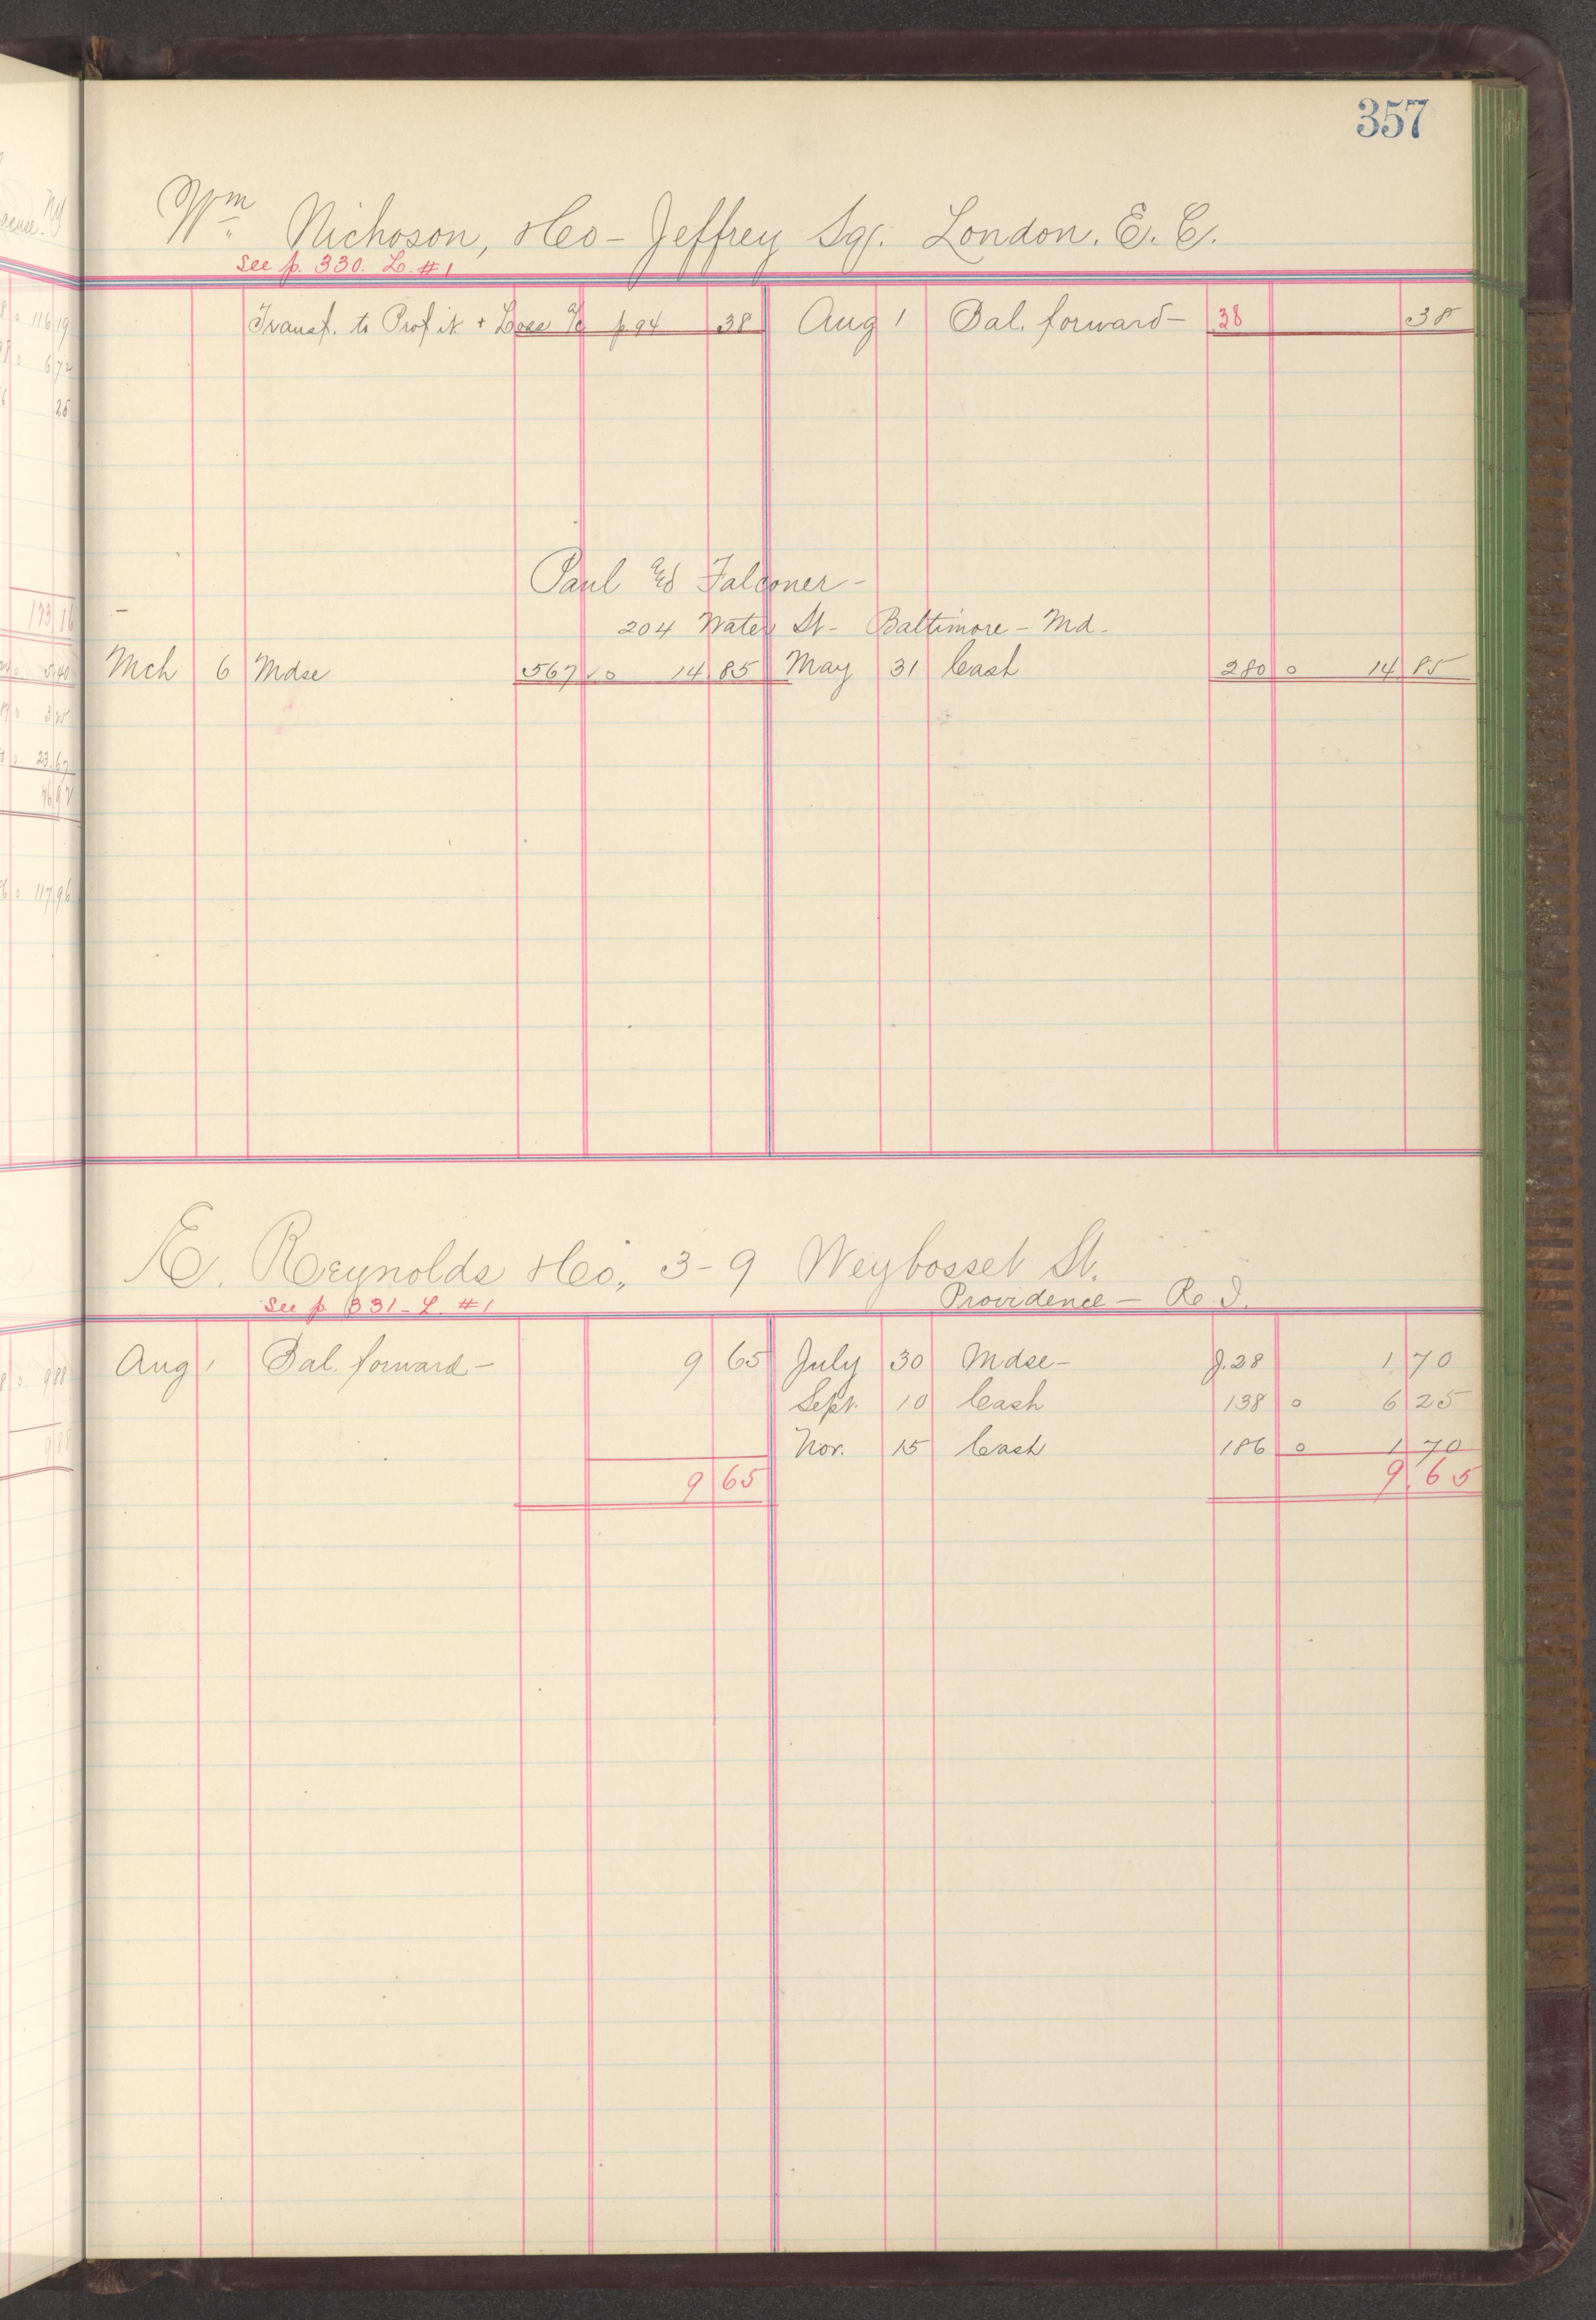 357
Wm. Nichoson, & Co - Jeffrey Sq. London. E. C.
See p. 330. L. #1
Transf. to Profit + Loss a/c p 94 38 Aug 1 Bal. forward - 38 38
Paul Falconer -
204 Water St - Baltimore - Md -
Mch 6 Mdse 567 o 14 85 May 31 Cash 280 o 14 85
E. Reynolds & Co., 3-9 Weybosset St.
See p 331 - L. #1 Providence - R. I.
Aug 1 Bal. forward - 9 65 July 30 Mdse - J. 28 1 70
Sept. 10 Cash 138 o 6 25
Nov. 15 Cash 186 o 1 70
9 65 9 65